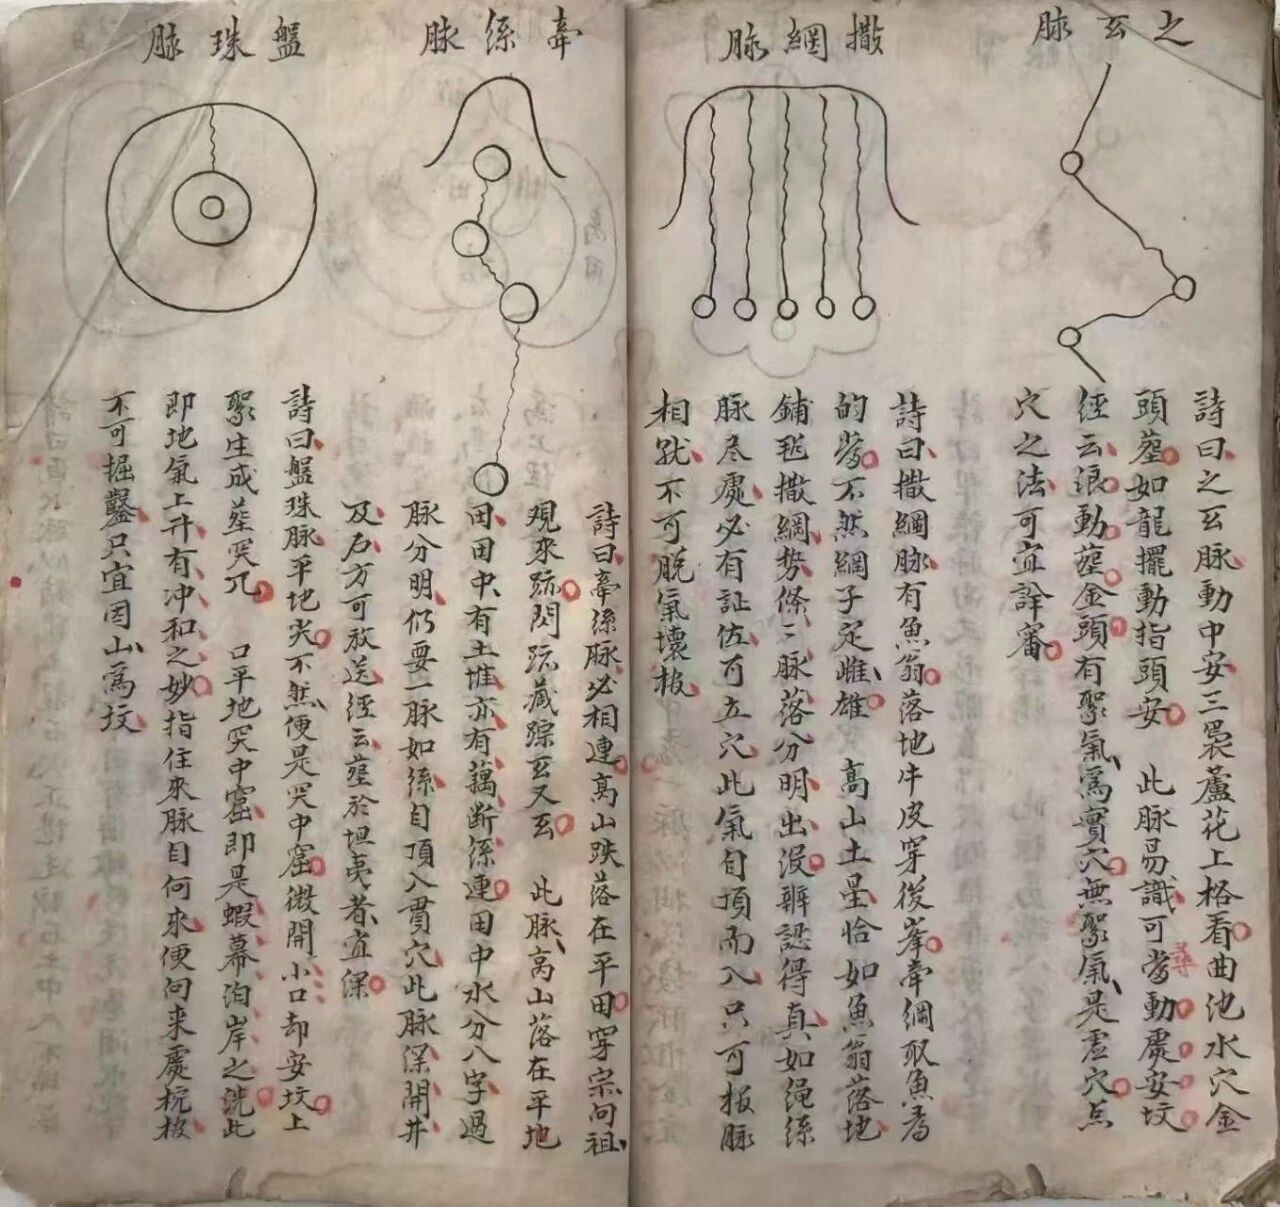 之玄脉
詩曰之玄脉動中安三裊蘆花上格看曲池水穴金
頭塟如龍擺動指頭安 此脉易識可尋動處安坟
經云浪動塟金頭有聚氣為實穴無聚氣是虛穴点
穴之法可宜詳審
撒網脉
詩曰撒網脉有魚翁落地牛皮穿後峯牽網取魚為
的當不然網子定雌雄 高山土星恰如魚翁落地
鋪毡撒網势條〻脉落分明出沒辨認得真如绳係
脉尽處必有証佐可立穴此氣自頂而入只可板脉
相就不可脱氣壊板
牽係脉
詩曰牽係脉必相連高山跌落在平田穿宗问祖
观來跡閃跡藏踪玄又玄 此脉高山落在平地
田田中有土堆亦有藕断係連田中水分八字過
脉分明仍要一脉如係自頂入贯穴此脉深開井
及石方可放送經云塟於坦夷者宜深
盤珠脉
詩曰盤珠脉平地尖不然便是哭中窟微開小口却安坟上
聚生成塟哭兀 口平地哭中窟即是蝦蟇泊岸之洗此
即地氣上升有冲和之妙指住來脉自何來便问来處枕板
不可掘鑿只宜因山為坟